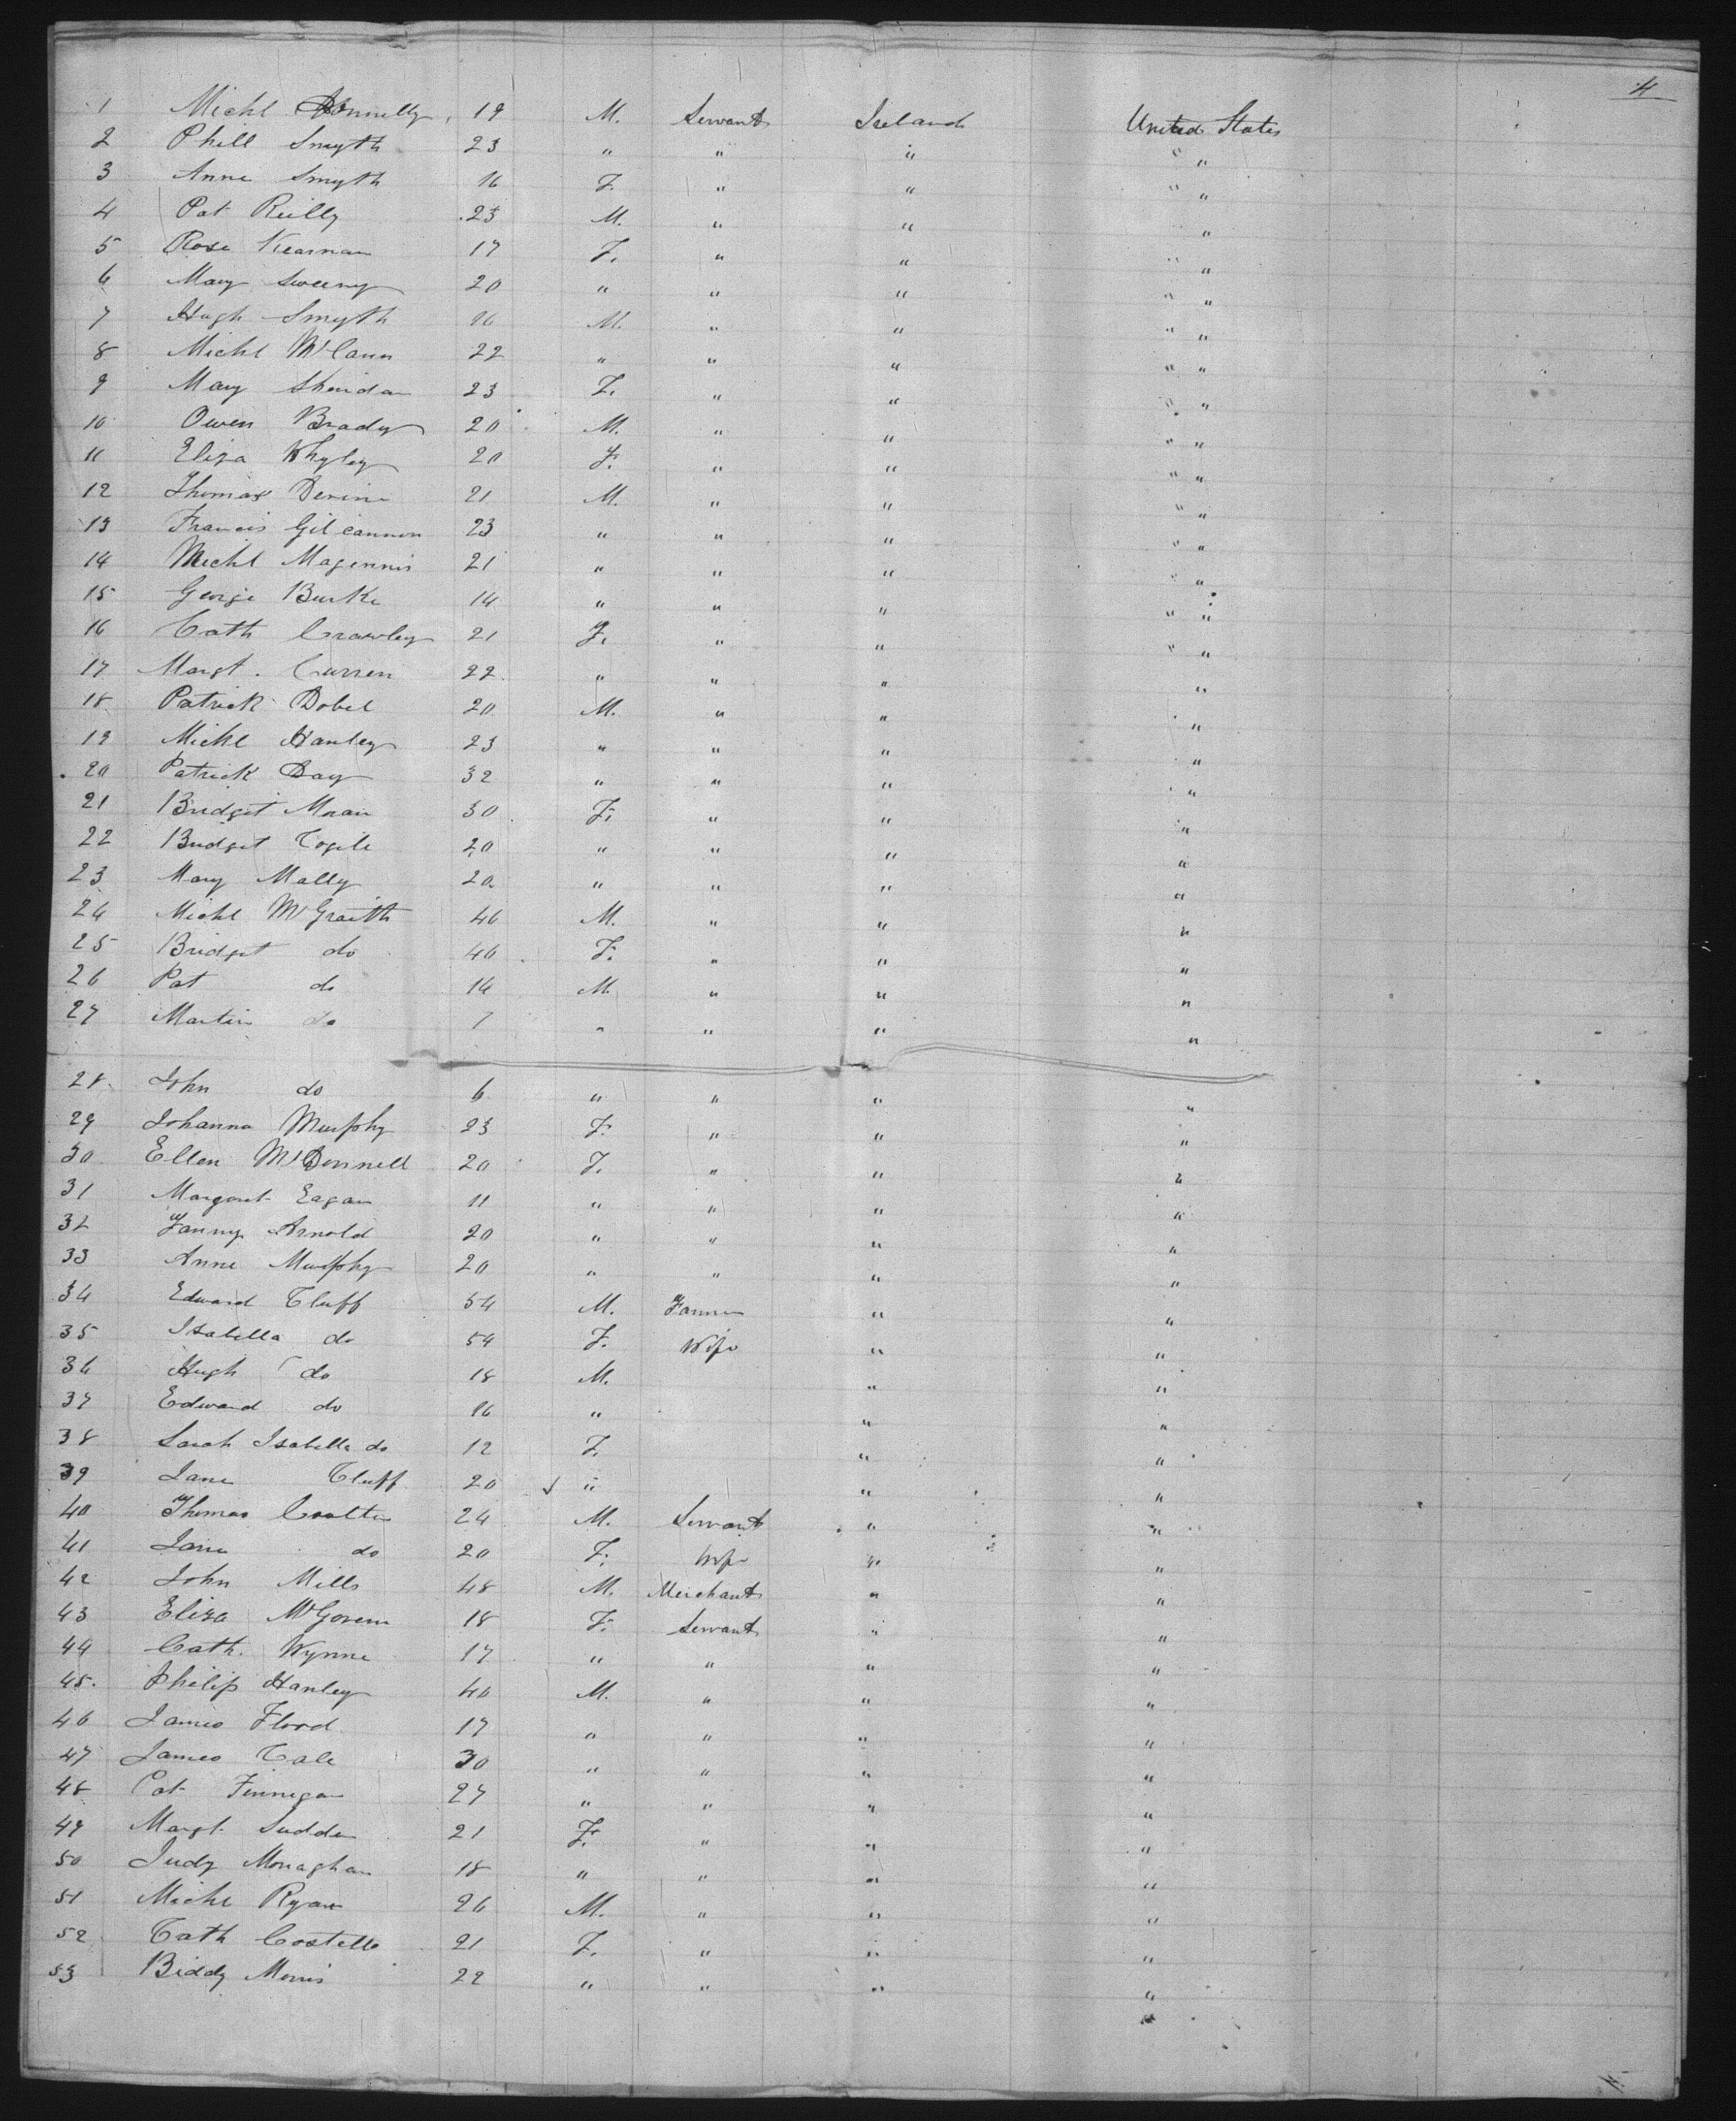 4
1 Michl Donnelly 19 M. Servant Ireland United States
2 Phill Smyth 23 " " " " "
3 Anne Smyth 16 F. " " " "
4 Pat Reilly 23 M. " " "
5 Rose Kearnan 17 F. " " " "
6 Mary Sweeny 20 " " " " "
7 Hugh Smyth 16 M. " " " "
8 Michl McCann 22 " " " " "
9 Mary Sheridan 23 F. " " " "
10 Owen Brady 20 M. " " " "
11 Eliza Whyley 20 F. " " " "
12 Thomas Devine 21 M. " " " "
13 Francis Gilcannon 23 " " " " "
14 Michl Magennis 21 " " " " "
15 George Burke 14 " " " " "
16 Cath Crawley 21 F. " " " "
17 Margt. Curren 22 " " " "
18 Patrick Dobel 20 M. " " "
19 Michl Hanley 23 " " " "
20 Patrick Day 32 " " " "
21 Bridget Moran 30 F. " " "
22 Bridget 20 " " " "
23 Mary Mally 20 " " " "
24 Michl McGraith 46 M. " " "
25 Bridget do 46 F. " " "
26 Pat do 14 M. " " "
27 Martin do 7 " " " "
28 John do 6 " " " "
29 Johanna Murphy 23 F. " " "
30 Ellen McDonnell 20 F. " " "
31 Margaret Eagan 11 " " " "
32 Fanny Arnold 20 " " " "
33 Anne Murphy 20 " " " "
34 Edward Cluff 54 M. Farmer " "
35 Isabella do 54 F. Wife " "
36 Hugh do 18 M. " "
37 Edward do 16 " " "
38 Sarah Isabella do 12 F. " "
39 Jane Cluff 20 " " "
40 Thomas Coulter 24 M. Servant " "
41 Jane do 20 F. Wife " "
42 John Mills 48 M. Merchant " "
43 Eliza McGovern 18 F. Servant " "
44 Cath. Wynne 17 " " " "
45. Philip Hanley 40 M. " " "
46 James Flood 17 " " " "
47 James Cale 30 " " " "
48 Pat Finnegan 27 " " " "
49 Margt Sudden 21 F. " " "
50 Judy Monaghan 18 " " " "
51 Michl Ryan 26 M. " " "
52 Cath Costello 21 F. " " "
53 Biddy Morris 22 " " " "